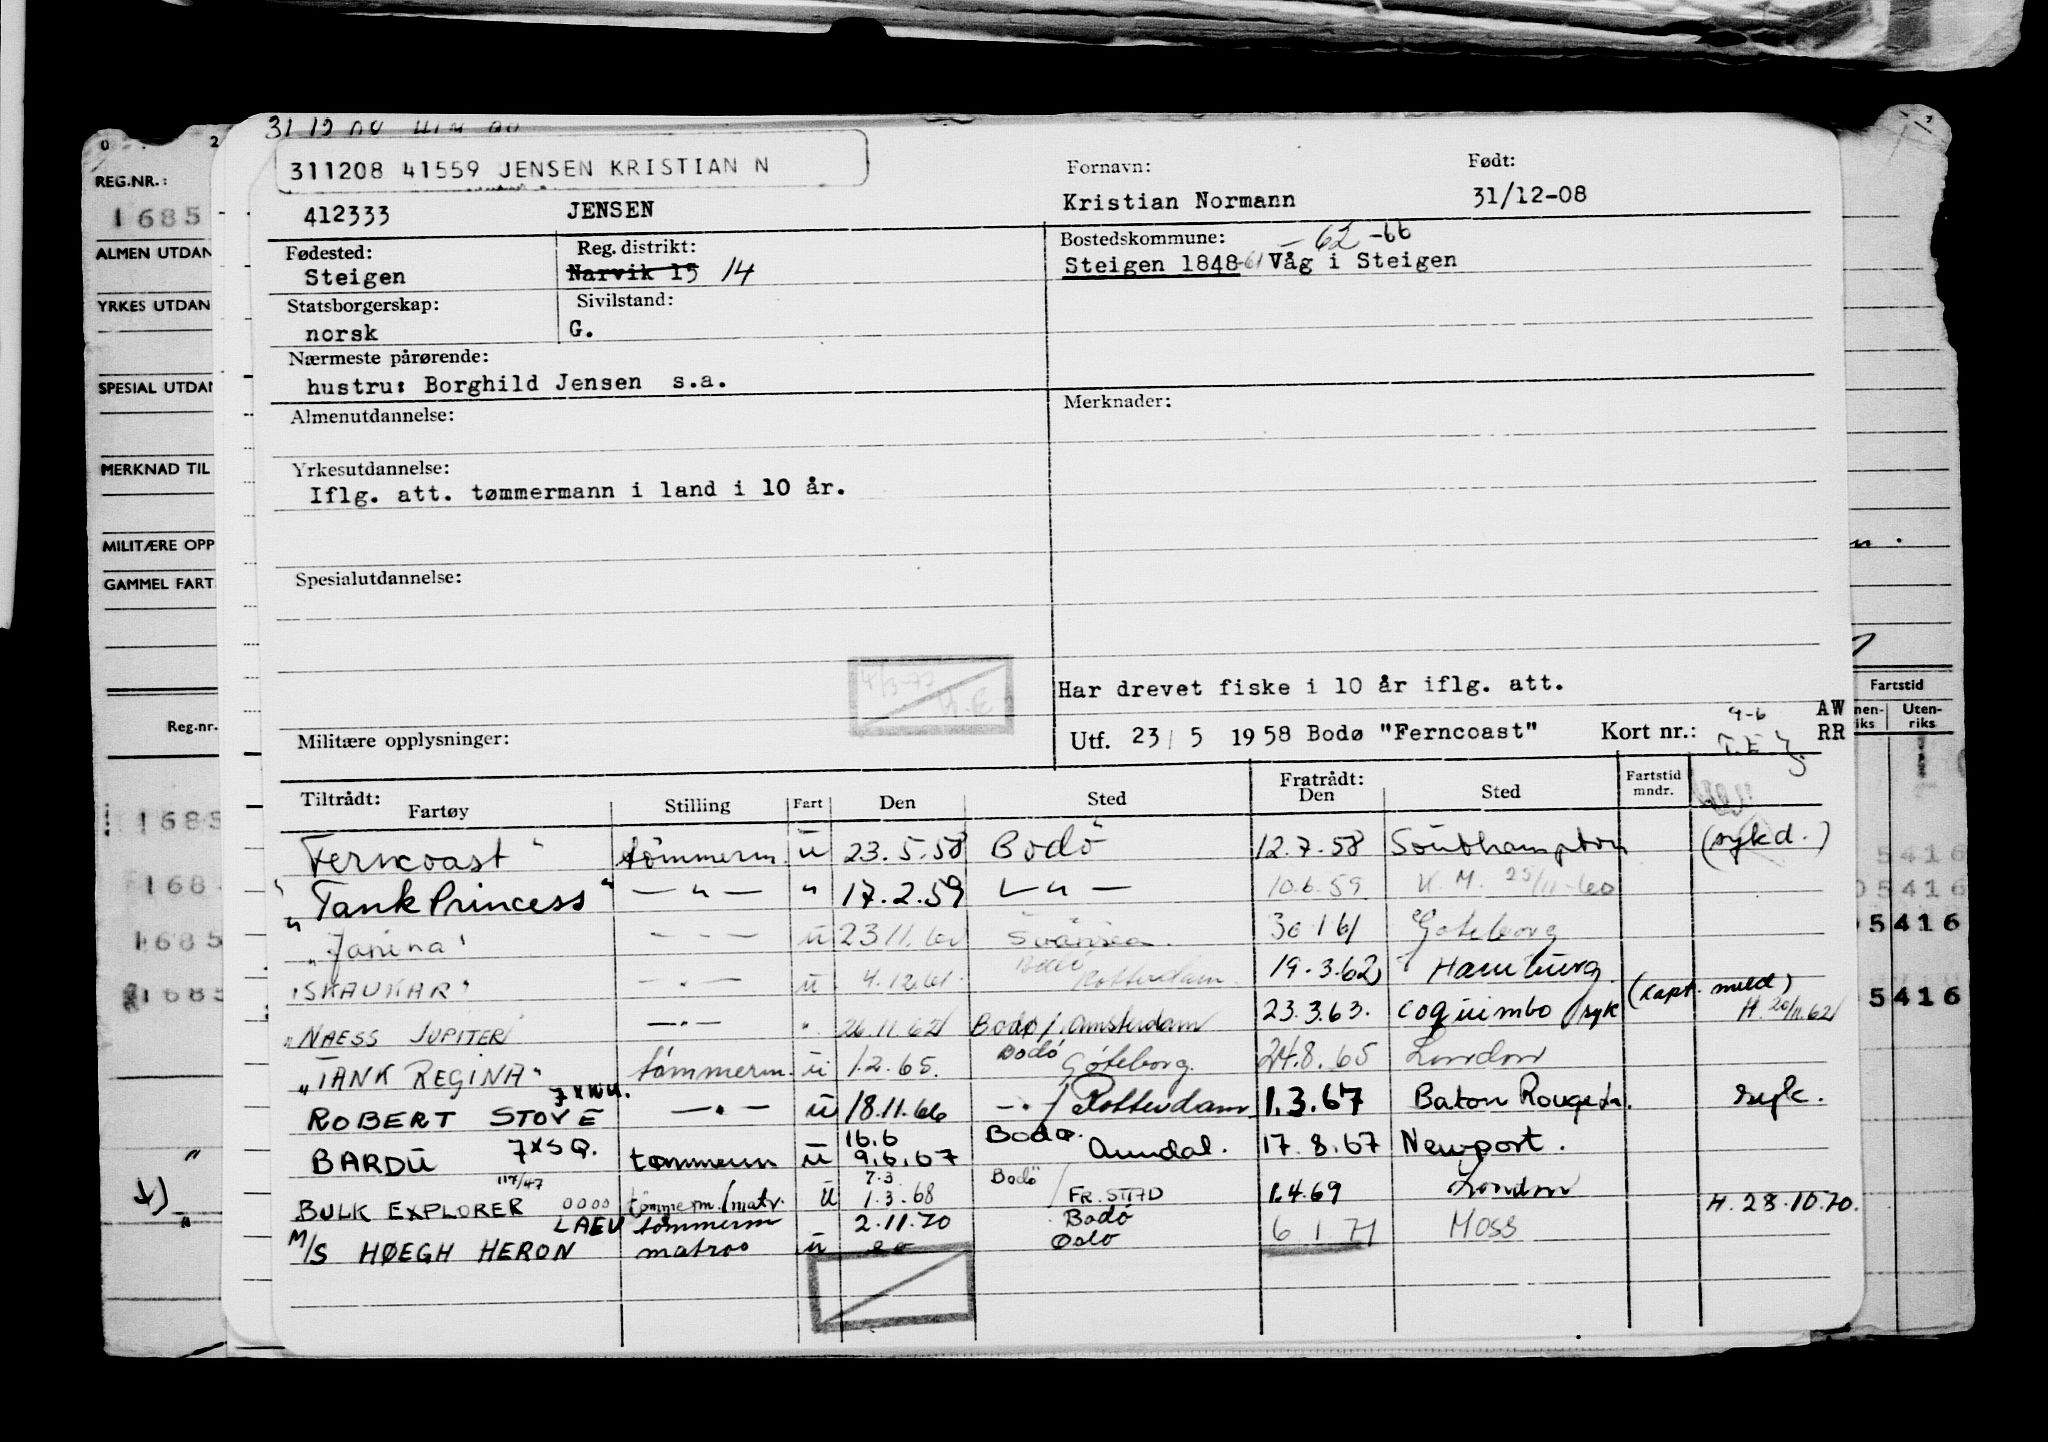 311208 41559 JENSEN KRISTIAN N
Fornavn: Født:
412333 JENSEN Kristian Normann 31/12-08
Fødested: Reg. distrikt: Bostedskommune: -62-66
Steigen Narvik 15 14 Steigen 1848-61 Våg i Steigen
Statsborgerskap: Sivilstand:
norsk G.
Nærmeste pårørende:
hustru: Borghild Jensen s.a.
Almenutdannelse: Merknader:
Yrkesutdannelse:
Iflg. att. tømmermann i land i 10 år.
Spesialutdannelse:
Har drevet fiske i 10 år iflg. att.
Militære opplysninger: Utf. 23/5 1958 Bodø "Ferncoast" Kort nr.: AW
RR
Tiltrådt: Fartøy Stilling Fart Den Sted Fratrådt: Den Sted Fartstid mndr.
Ferncoast" tømmerm. ü 23.5.58 Bodö 12.7.58 Southampton (sykd.)
"Tank Princess" — " — " 17.2.59 — " — 10.6.59 25/11-60
"Janina" — - — ü 23 11. 60 Swansea. 30 1 61 Göteborg
"SKAUKAR" — . — ü 4.12.61. Bodö Rotterdam 19.3.62 Hamburg
"NAESS JUPITER" — . — " 26.11.62 Bodø/Amsterdam 23.3.63. Coquimbo syk (Kapt. meld) H. 20/11.62
"TANK REGINA" tømmerm. ü 1.2.65. Bodö Göteborg. 24.8.65 London
ROBERT STOVE — . — ü 18.11.66 — . — / Rotterdam 1.3.67 Baton Rouge syk.
16.6 Bodø.
BARDU 7XSQ. tømmerm ü 9.6.67 Arendal. 17.8.67 Newport.
117/47 7.3 Bodö
BULK EXPLORER 0000 tömmerm./matr. ü 1.3.68 / FR.STAD 1.4.69 London
LAEU tömmerm 2.11.70 Bodö H. 28.10.70.
M/S HØEGH HERON matros ü Oslo 6 1 71 MOSS
REG.NR.:
1685
ALMEN UTDAN
YRKES UTDAN
SPESIAL UTDAN
MERKNAD TIL
MILITÆRE OPP
GAMMEL FART
Reg.nr.
1685
168
1685
1685
Fartstid
nen-
iks
Uten-
riks
5416
05416
5416
5416